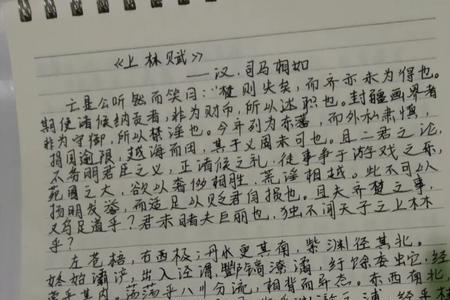 《上林赋》
——汉·司马相如
亡是公听然而笑曰：“楚则失矣，而齐亦未为得也。
期使诸侯纳贡者，非为财币，所以述职也。封疆画界者
非为守御，所以禁淫也。今齐列为东藩，而外私肃慎，
捐国逾限，越海而田，其于义固未可也。且二君之论，
不务明君臣之义，正诸侯之礼，徒事争于游戏之乐，
苑囿之大，欲以奢侈相胜，荒淫相越。此不可以
扬名发誉，而适足以贬君自损也。且夫齐楚之事，
又乌足道乎？君未睹夫巨丽也，独不闻天子之上林
乎？
左苍梧，右西极；丹水更其南，紫渊径其北。
终始灞浐，出入泾渭；酆镐潦潏，纡馀委蛇，经
营乎其内。荡荡乎八川分流，相背而异态。东西南北，